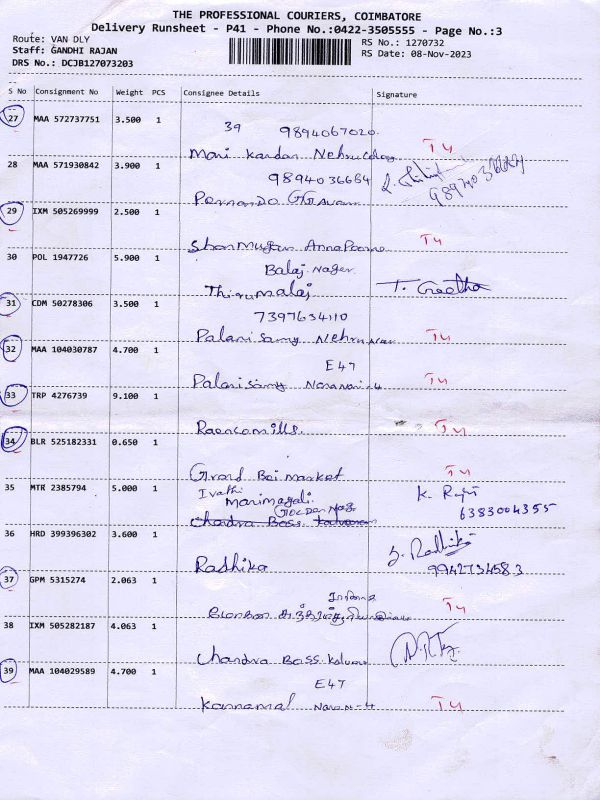 THE PROFESSIONAL COURIERS, COIMBATORE
Delivery Runsheet - P41 - Phone No.:0422-3505555 - Page No.:3
Route: VAN DLY RS No.: 1270732
Staff: GANDHI RAJAN RS Date: 08-Nov-2023
DRS No.: DCJB127073203
S No Consignment No Weight PCS Consignee Details Signature
39 9894067020
27 MAA 572737751 3.500 1
Mari Kandan Nehru T4
28 MAA 571930842 3.900 1
9894036664 9894036664
Pernando
29 IXM 505269999 2.500 1
Shanmugam Annapoorna T4
30 POL 1947726 5.900 1
Balaj Nager
Thirumalaj T. Geetha
31 CDM 50278306 3.500 1
7397634110
Palanisamy Nehru Nar T4
32 MAA 104030787 4.700 1
E47
Palanisamy Naranari-4 T4
33 TRP 4276739 9.100 1
Raencomills. T4
34 BLR 525182331 0.650 1
Grand Bei market T4
35 MTR 2385794 5.000 1 K. Raju
Ivathi
Marimagali. 6383004355
Golden Nagr
Chandra Bass
36 HRD 399396302 3.600 1
S. Radhika
Radhika 9942734583
37 GPM 5315274 2.063 1
T4
38 IXM 505282187 4.063 1
Chandra Bass
39 MAA 104029589 4.700 1
E47
Kannamal Naran-4 T4